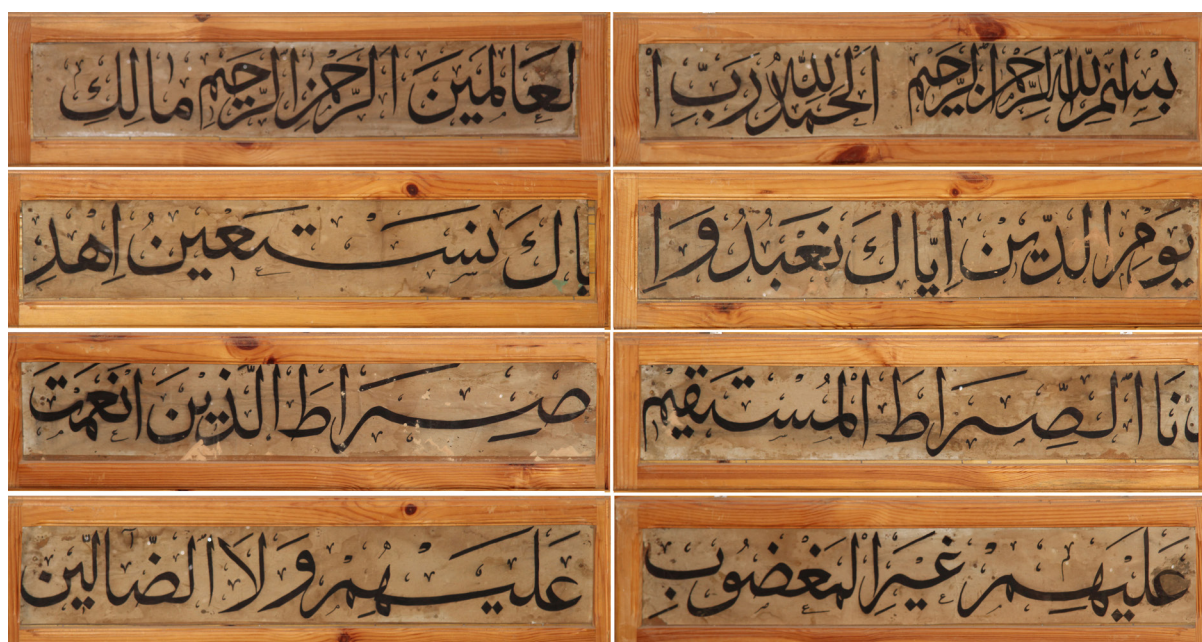 بِسْمِ اللهِ الرَّحْمٰنِ الرَّحِيمِ اَلْحَمْدُ لِلّٰهِ رَبِّ اْ
لعَالَمِينَ اَلرَّحْمٰنِ الرَّحِيمِ مَالِكِ
يَوْمِ الدِّينِ اِيَّاكَ نَعْبُدُ وَاِ
يَّاكَ نَسْتَعِينُ اِهْدِ
نَا الصِّرَاطَ الْمُسْتَقِيمَ
صِرَاطَ الَّذِينَ اَنْعَمْتَ
عَلَيْهِمْ غَيْرِ الْمَغْضُوبِ
عَلَيْهِمْ وَلَا الضَّالِّينَ